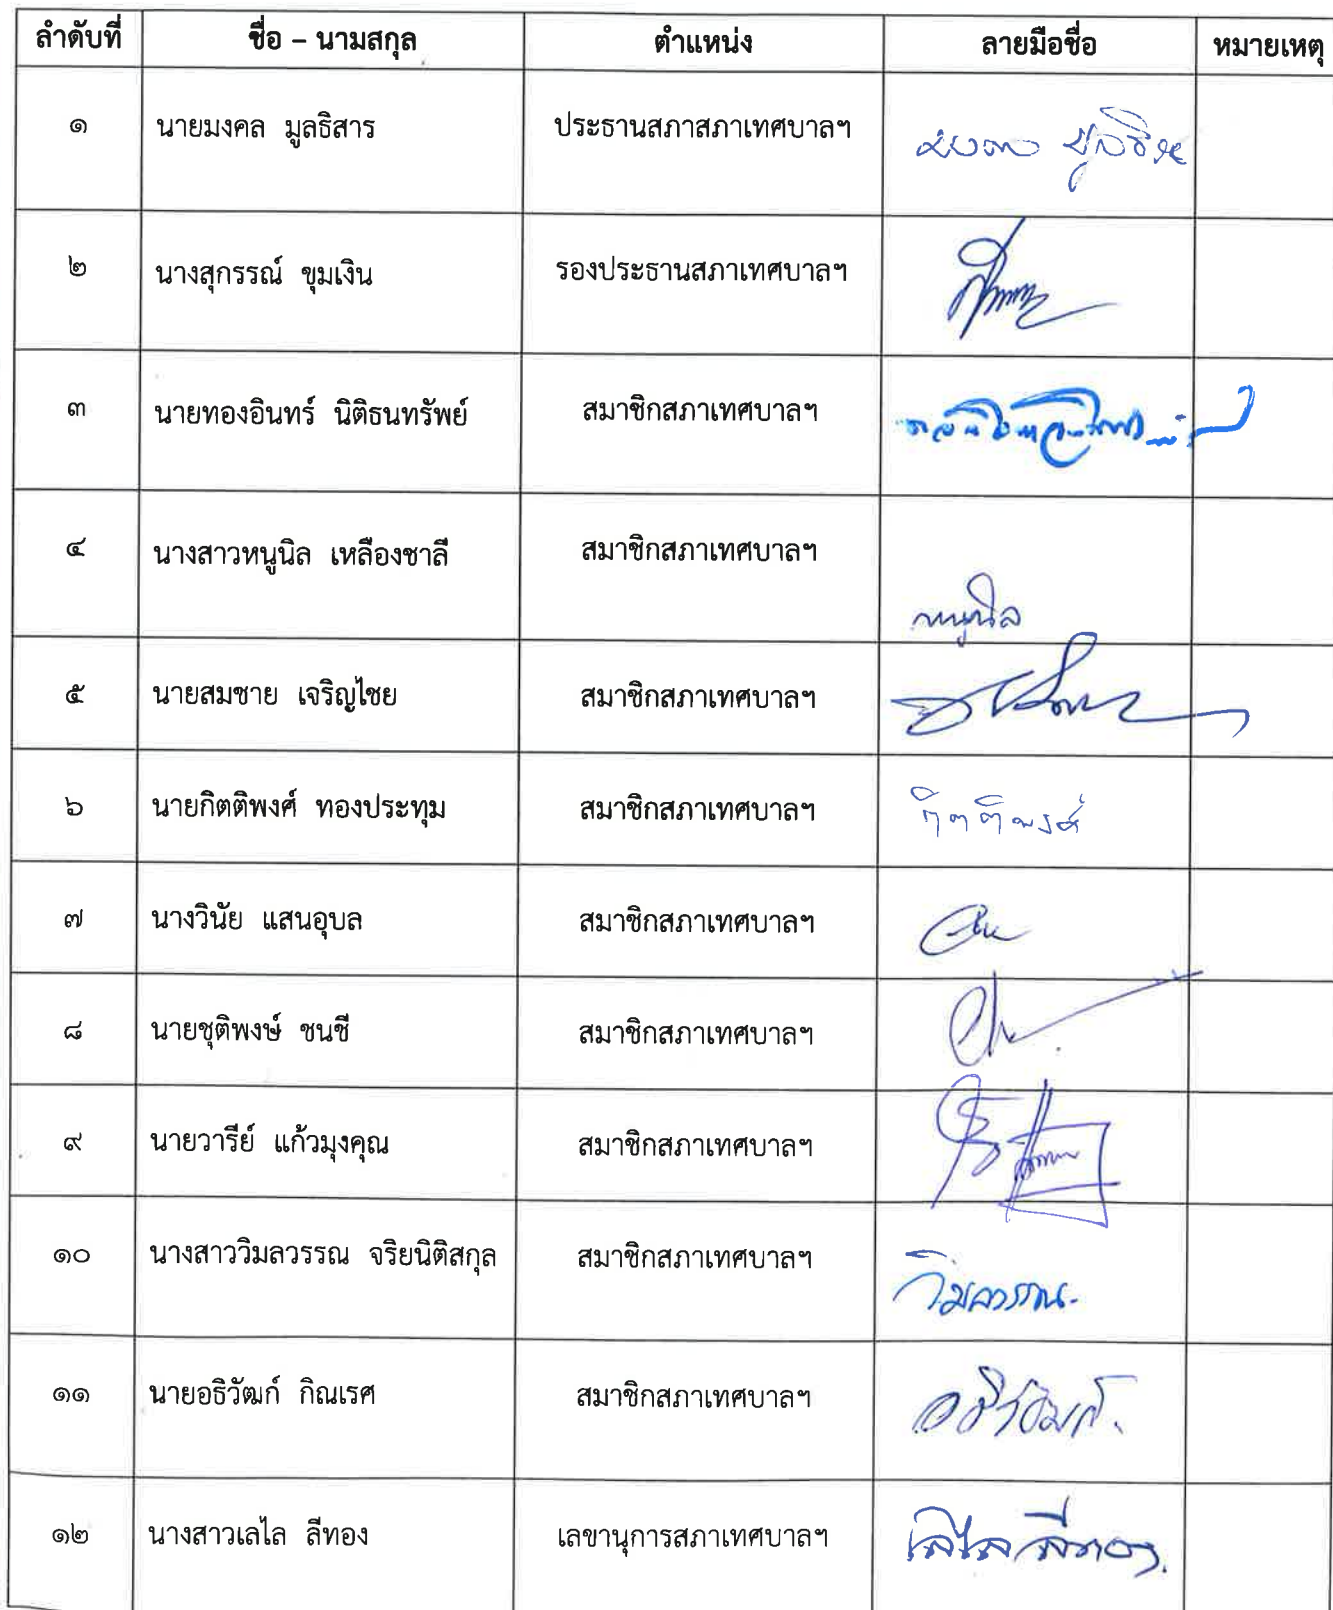 ลำดับที่ ชื่อ – นามสกุล ตำแหน่ง ลายมือชื่อ หมายเหตุ
๑ นายมงคล มูลธิสาร ประธานสภาสภาเทศบาลฯ
๒ นางสุกรรณ์ ขุมเงิน รองประธานสภาเทศบาลฯ
๓ นายทองอินทร์ นิติธนทรัพย์ สมาชิกสภาเทศบาลฯ
๔ นางสาวหนูนิล เหลืองชาลี สมาชิกสภาเทศบาลฯ หนูนิล
๕ นายสมชาย เจริญไชย สมาชิกสภาเทศบาลฯ
๖ นายกิตติพงศ์ ทองประทุม สมาชิกสภาเทศบาลฯ กิตติพงศ์
๗ นางวินัย แสนอุบล สมาชิกสภาเทศบาลฯ
๘ นายชุติพงษ์ ชนชี สมาชิกสภาเทศบาลฯ
๙ นายวารีย์ แก้วมุงคุณ สมาชิกสภาเทศบาลฯ
๑๐ นางสาววิมลวรรณ จริยนิติสกุล สมาชิกสภาเทศบาลฯ วิมลวรรณ
๑๑ นายอธิวัฒก์ กิณเรศ สมาชิกสภาเทศบาลฯ อธิวัฒก์
๑๒ นางสาวเลไล ลีทอง เลขานุการสภาเทศบาลฯ เลไล ลีทอง